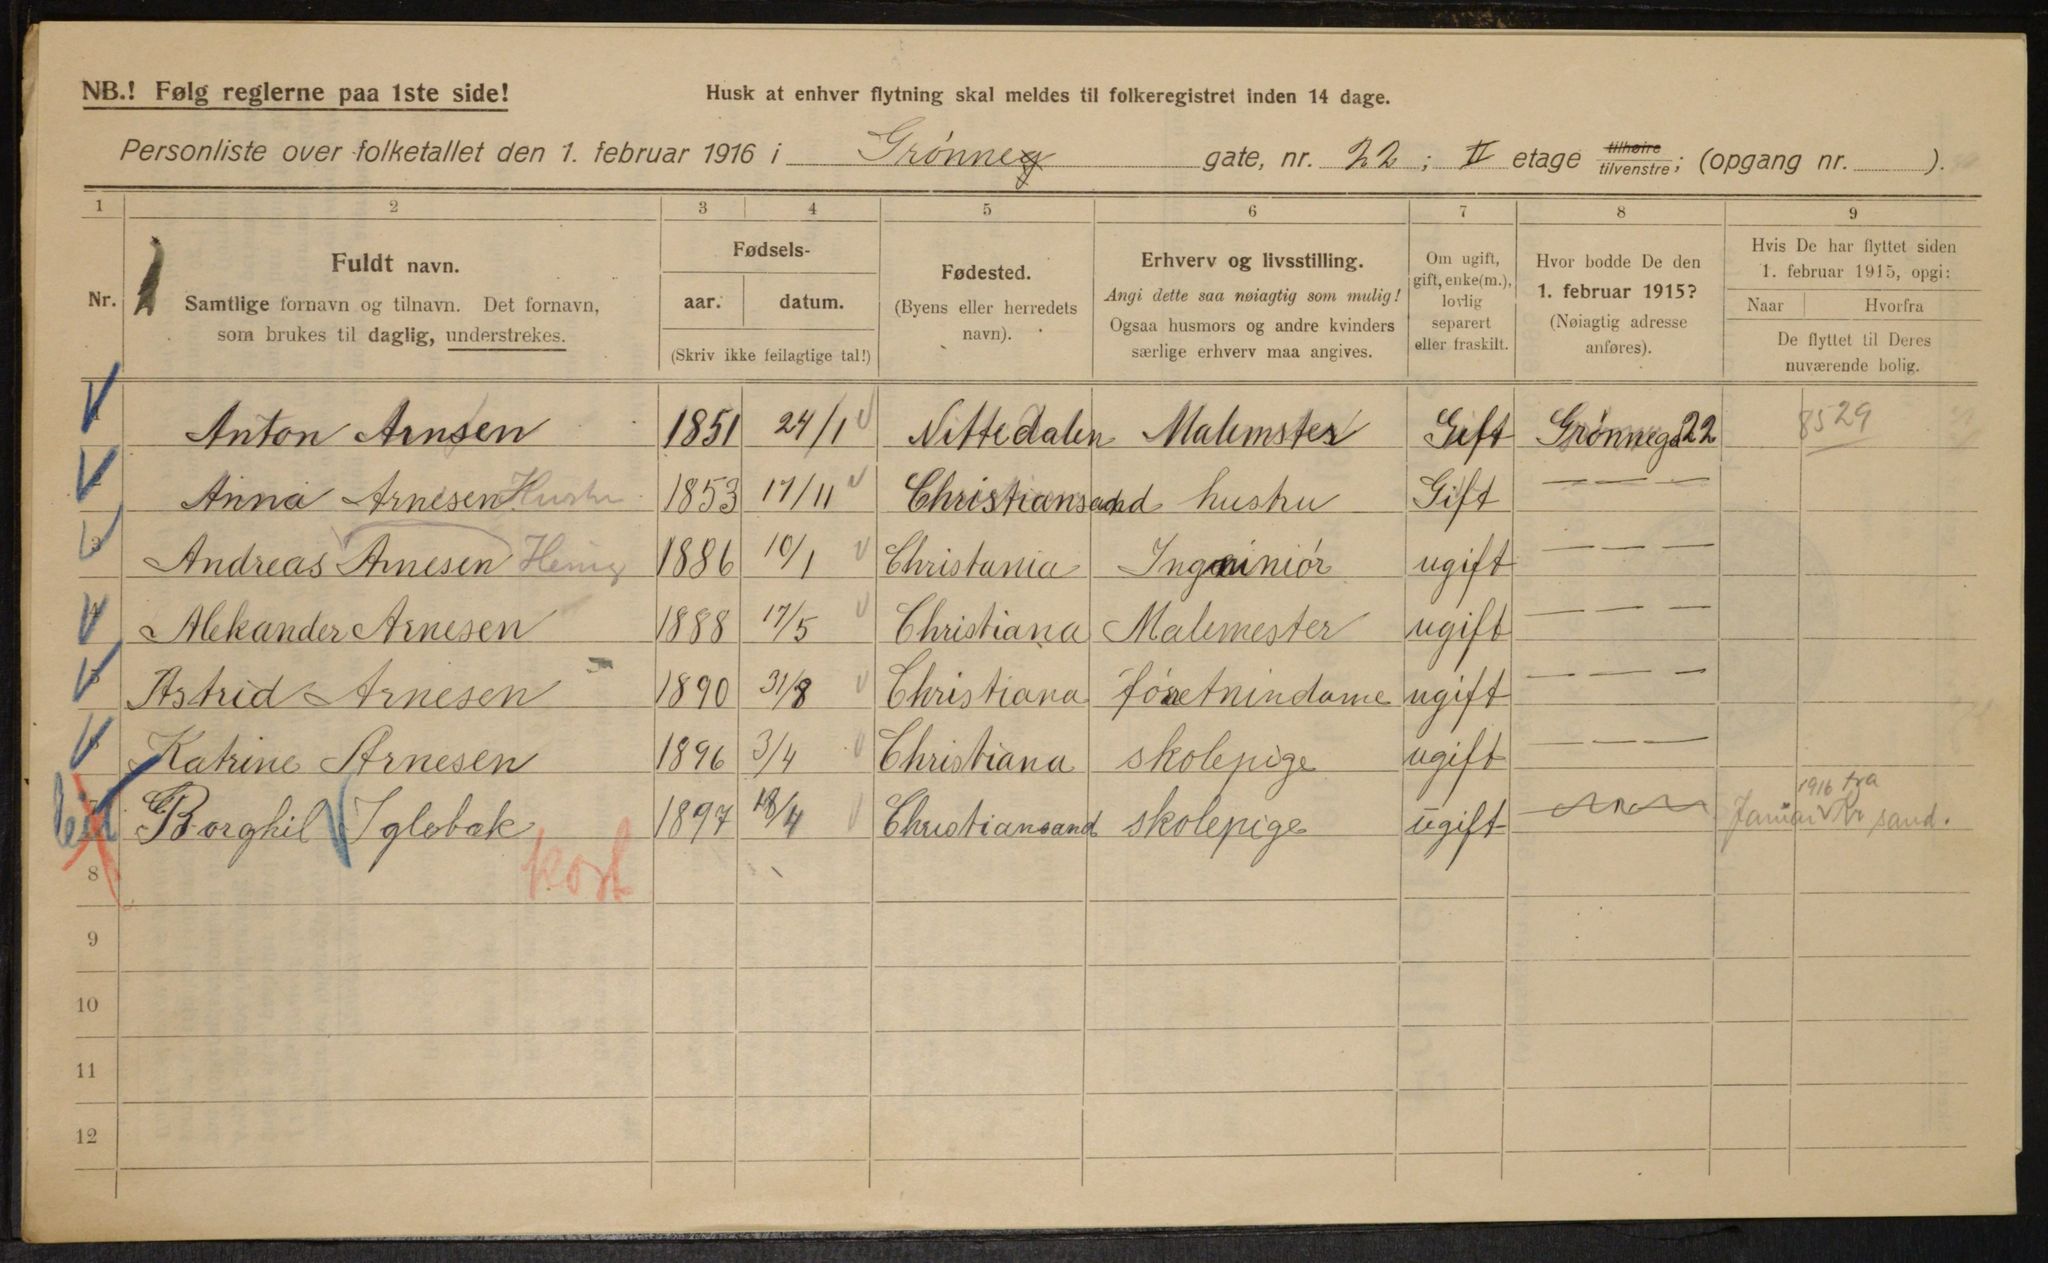 NB.! Følg reglerne paa 1ste side!
Husk at enhver flytning skal meldes til folkeregistret inden 14 dage.
Personliste over folketallet den 1. februar 1916 i Grønneg gate, nr. 22; II etage tilhøire tilvenstre; (opgang nr. ).
1 2 3 4 5 6 7 8 9
Nr.
Fuldt navn.
Samtlige fornavn og tilnavn. Det fornavn,
som brukes til daglig, understrekes.
Fødsels-
aar. datum.
(Skriv ikke feilagtige tal!)
Fødested.
(Byens eller herredets
navn).
Erhverv og livsstilling.
Angi dette saa nøiagtig som mulig!
Ogsaa husmors og andre kvinders
særlige erhverv maa angives.
Om ugift,
gift, enke(m.),
lovlig
separert
eller fraskilt.
Hvor bodde De den
1. februar 1915?
(Nøiagtig adresse
anføres).
Hvis De har flyttet siden
1. februar 1915, opgi:
Naar Hvorfra
De flyttet til Deres
nuværende bolig.
Anton Arnsen 1851 24/1 Nittedalen Malemster Gift Grønneg 22 8529
Anna Arnesen Hustru 1853 17/11 Christiansand hustru Gift — — —
3 Andreas Arnesen 1886 10/1 Christania Ingeniniör ugift — — —
4 Alekander Arnesen 1888 17/5 Christiana Malemester ugift — — —
5 Astrid Arnesen 1890 31/8 Christiana företnindame ugift — — —
6 Katrine Arnesen 1896 3/4 Christiana skolepige ugift — — —
7 Borghil Iglebæk 1897 18/4 Christiansand skolepige ugift Januar 1916 fra Kr sand.
kort
8
9
10
11
12